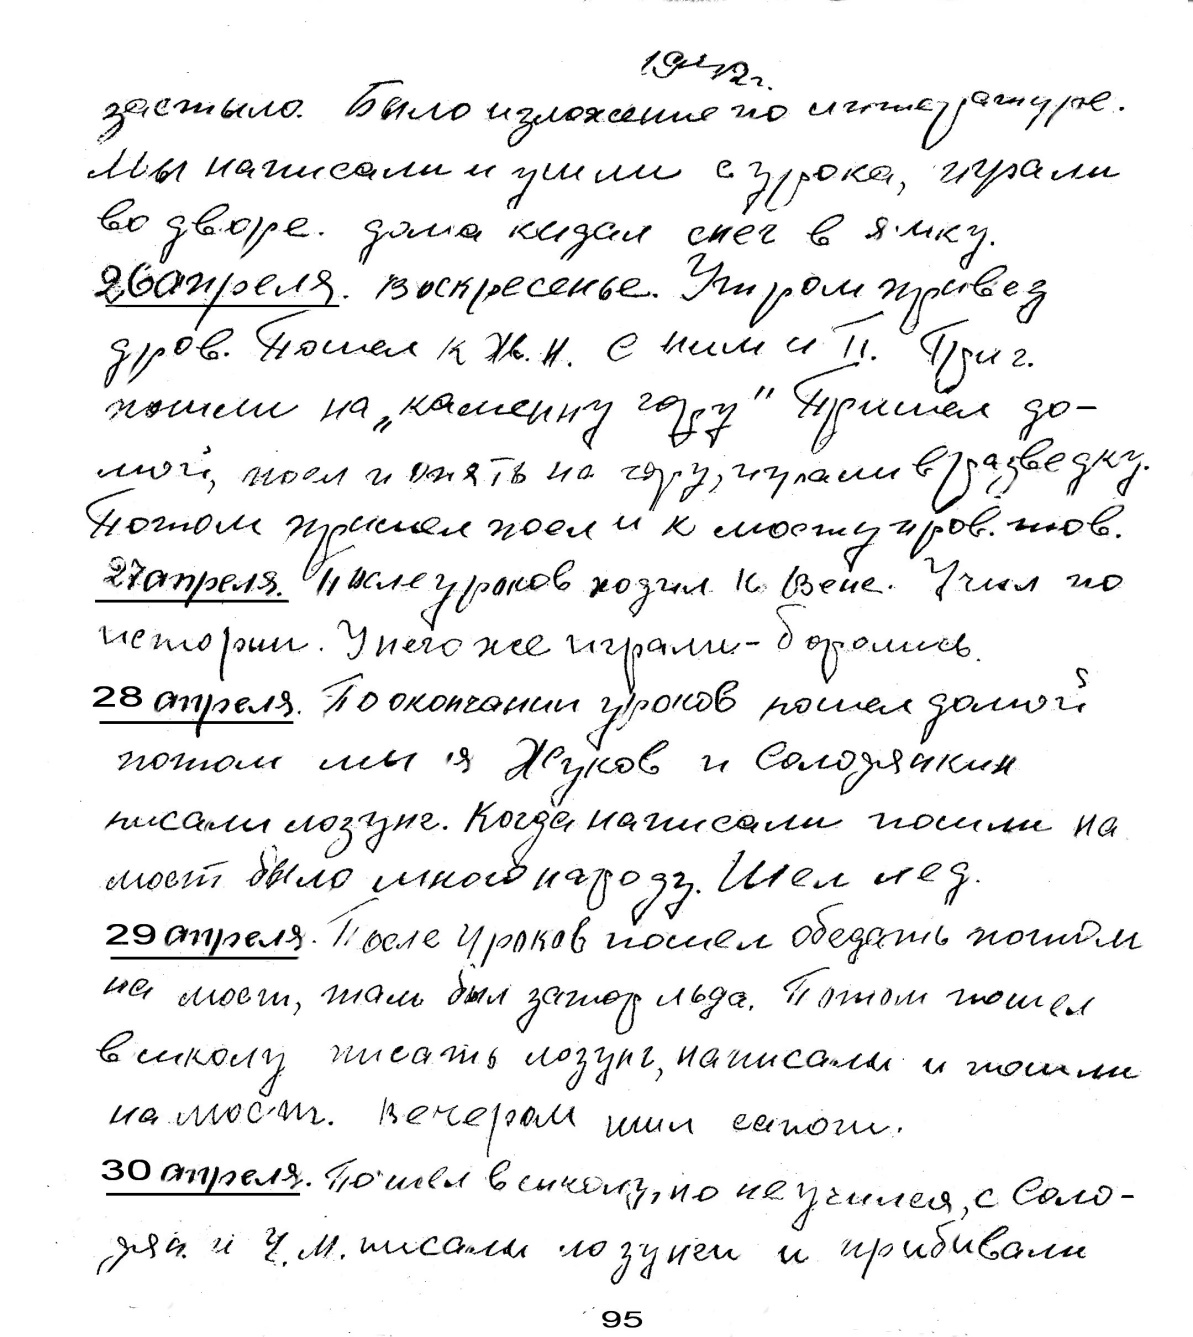 1942г.
застыло. Было изложение по литературе.
Мы написали и ушли с урока, играли
во дворе. дома кидал снег в ямку.
26 апреля. Воскресенье. Утром привез
дров. Пошел к Ж. Н. С ним и П. Григ.
пошли на „каменну гору" Пришел до-
мой, поел и опять на гору, играли в разведку.
Потом пришел поел и к мосту пров. тов.
27 апреля. После уроков ходил к Вене. Учил по
истории. У него же играли - боролись.
28 апреля. По окончании уроков пошел домой
потом мы я Жуков и Солодянкин
писали лозунг. Когда написали пошли на
мост было много народу. Шел лед.
29 апреля. После уроков пошел обедать потом
на мост, там был затор льда. Потом пошел
в школу писать лозунг, написали и пошли
на мост. Вечером шил сапоги.
30 апреля. Пошел в школу, но не учился, с Соло-
дян. и Ч. М. писали лозунги и прибивали
95